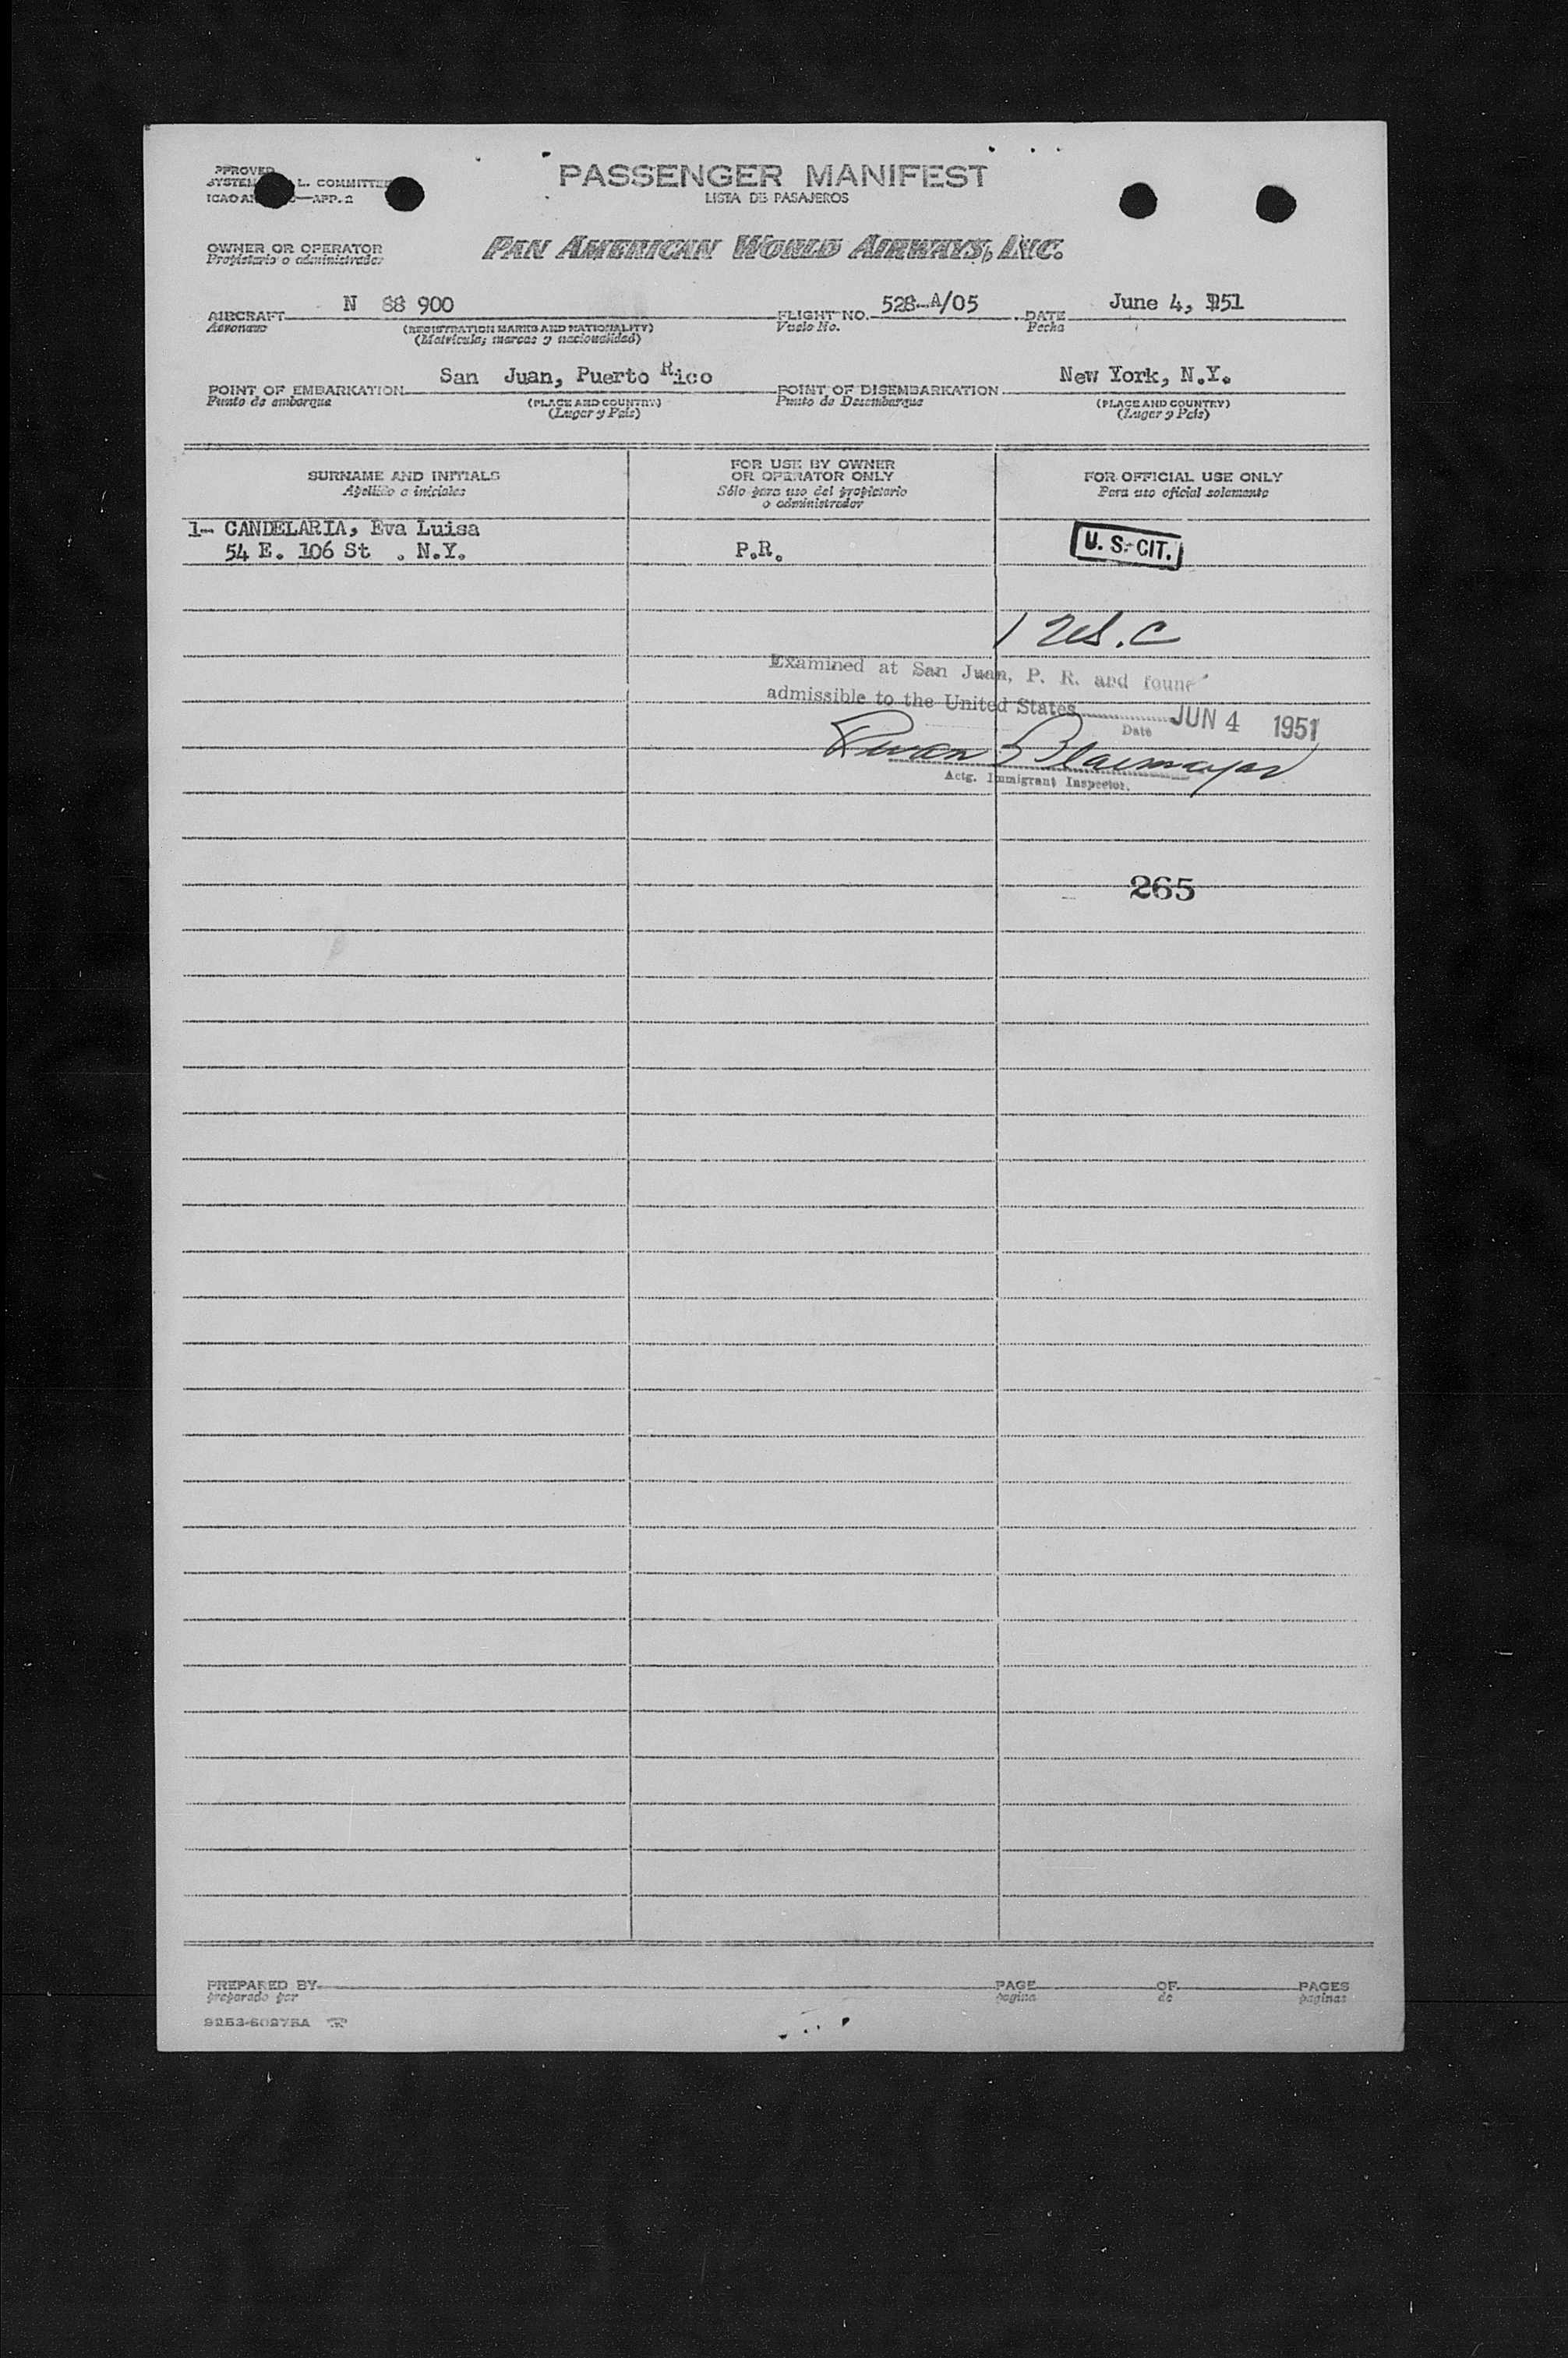 PASSENGER MANIFEST
LISTA DE PASAJEROS
L. COMMITTEE
APP. 2
OWNER OR OPERATOR
Propietario o administrador
PAN AMERICAN WORLD AIRWAYS, INC.
AIRCRAFT N 88 900 FLIGHT NO. 528-A/05 DATE June 4, 51
Aeronave (REGISTRATION MARKS AND NATIONALITY) Vuelo No. Fecha
(Matricula; marcas y nacionalidad)
POINT OF EMBARKATION San Juan, Puerto Rico POINT OF DISEMBARKATION New York, N.Y.
Punto de embarque (PLACE AND COUNTRY) Punto de Desembarque (PLACE AND COUNTRY)
(Lugar y País) (Lugar y País)
SURNAME AND INITIALS
Apellido e iniciales
FOR USE BY OWNER
OR OPERATOR ONLY
Sólo para uso del propietario
o administrador
FOR OFFICIAL USE ONLY
Para uso oficial solamente
1- CANDELARIA, Eva Luisa
54 E. 106 St . N.Y. P.R. U. S. CIT.
1 U.S.C
Examined at San Juan, P. R. and found
admissible to the United States JUN 4 1951
Date
Actg. Immigrant Inspector.
265
PREPARED BY PAGE OF PAGES
preparado por pagina de paginas